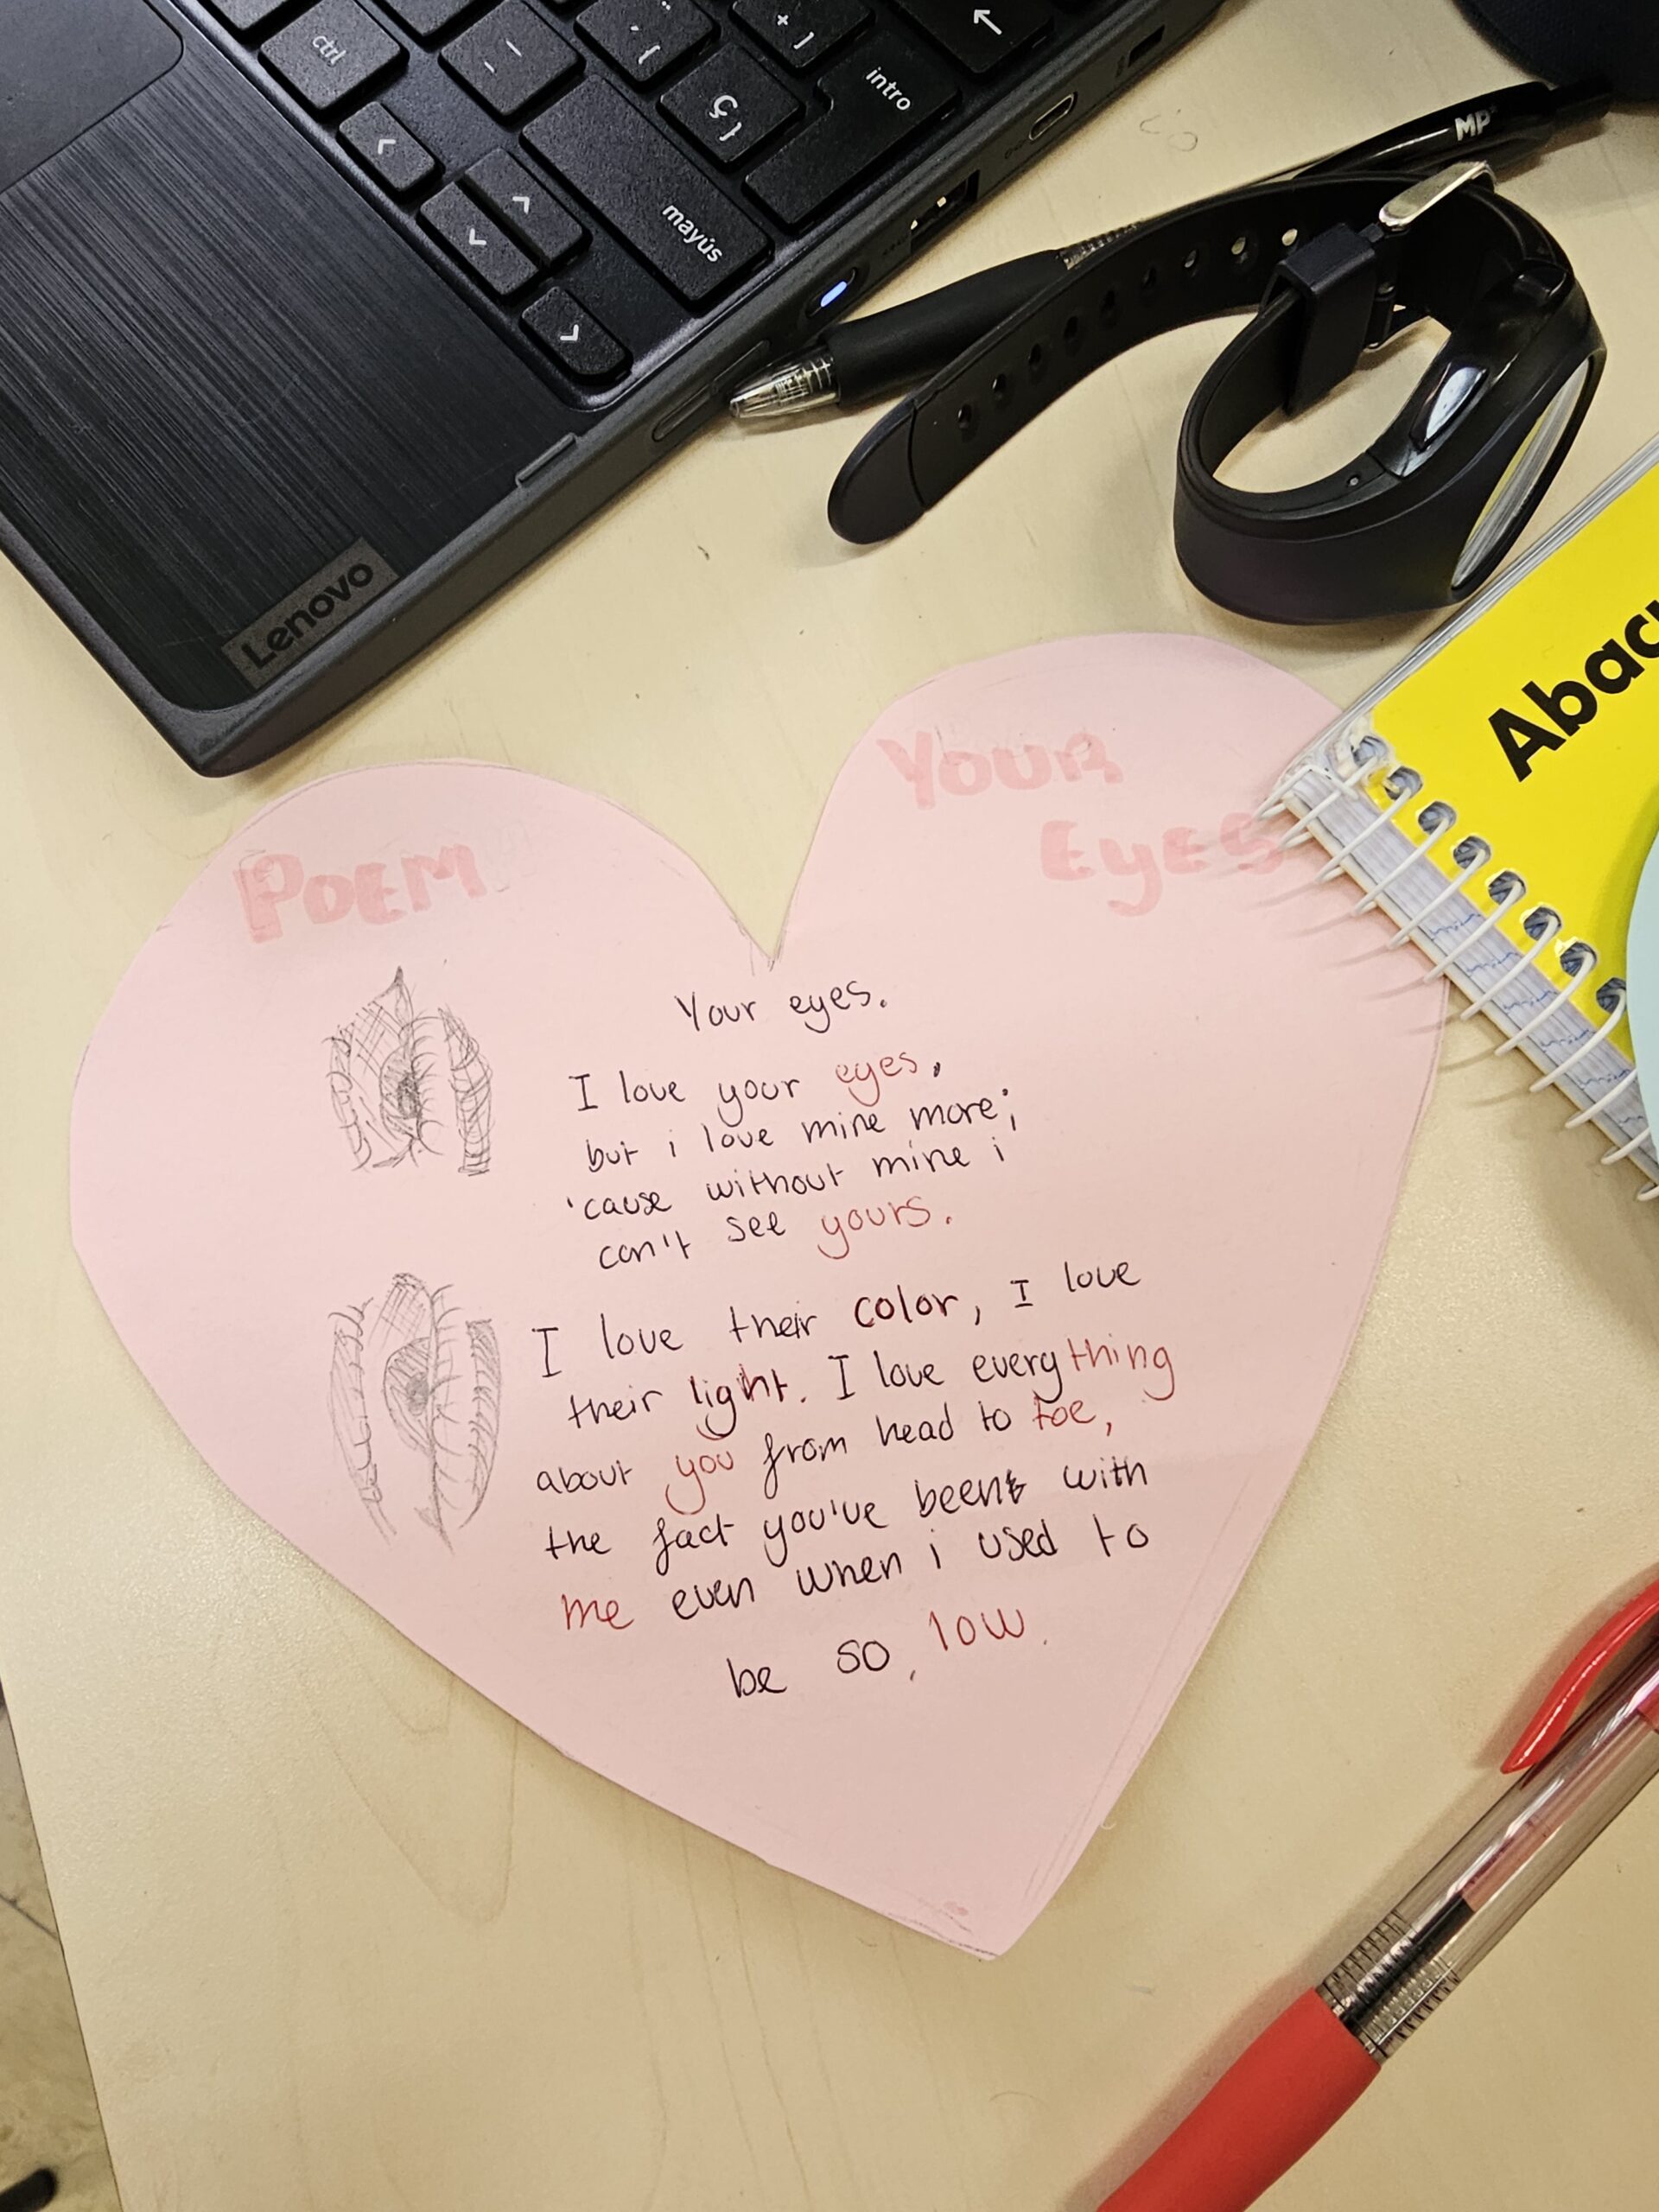 ctrl
-
¨ ´ {
+ ]
←
Ç }
intro
<
^
mayús
Lenovo
MP
POEM
YOUR
EyES
Your eyes.
I love your eyes,
but i love mine more;
'cause without mine i
can't see yours.
I love their color, I love
their light. I love everything
about you from head to toe,
the fact you've been with
me even when i used to
be so, low.